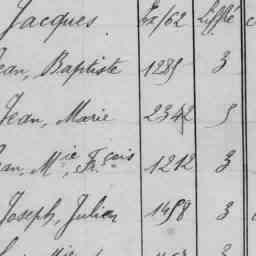 Jacques Ex/62 Liffré
Jean, Baptiste 1285 3
Jean, Marie 2342 5
Jean, Mie Frçois 1212 3
Joseph, Julien 1458 3